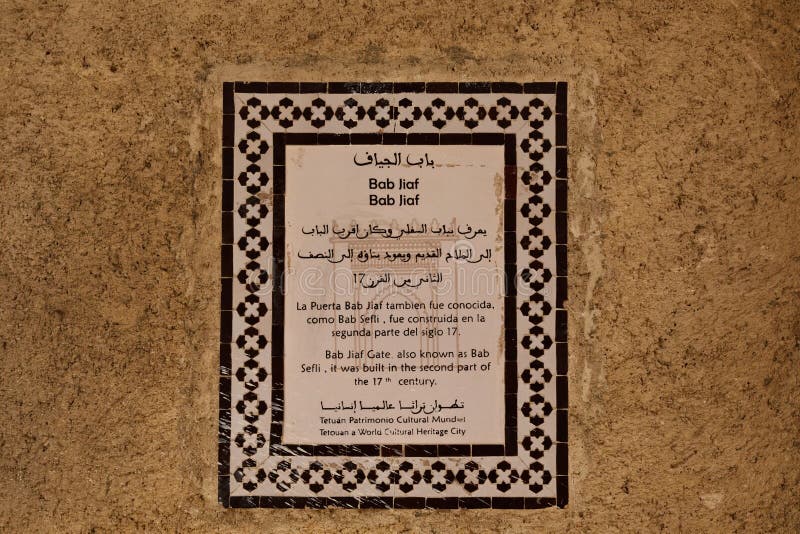 باب الجياف
Bab Jiaf
Bab Jiaf
يعرف بباب السفلي وكان أقرب الباب
إلى الملاح القديم ويعود بناؤه إلى النصف
الثاني من القرن 17
La Puerta Bab Jiaf tambien fue conocida,
como Bab Sefli , fue construida en la
segunda parte del siglo 17.
Bab Jiaf Gate, also known as Bab
Sefli , it was built in the second part of
the 17 th century.
تطوان تراثا عالميا إنسانيا
Tetuán Patrimonio Cultural Mundiel
Tetouan a World Cultural Heritage City
dreamstime